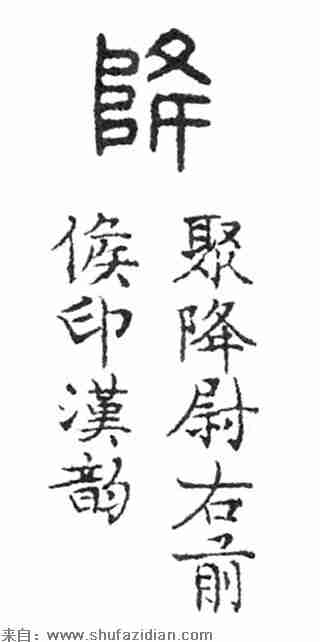 降
聚降尉右前
候印漢韵
来自：www.shufazidian.com